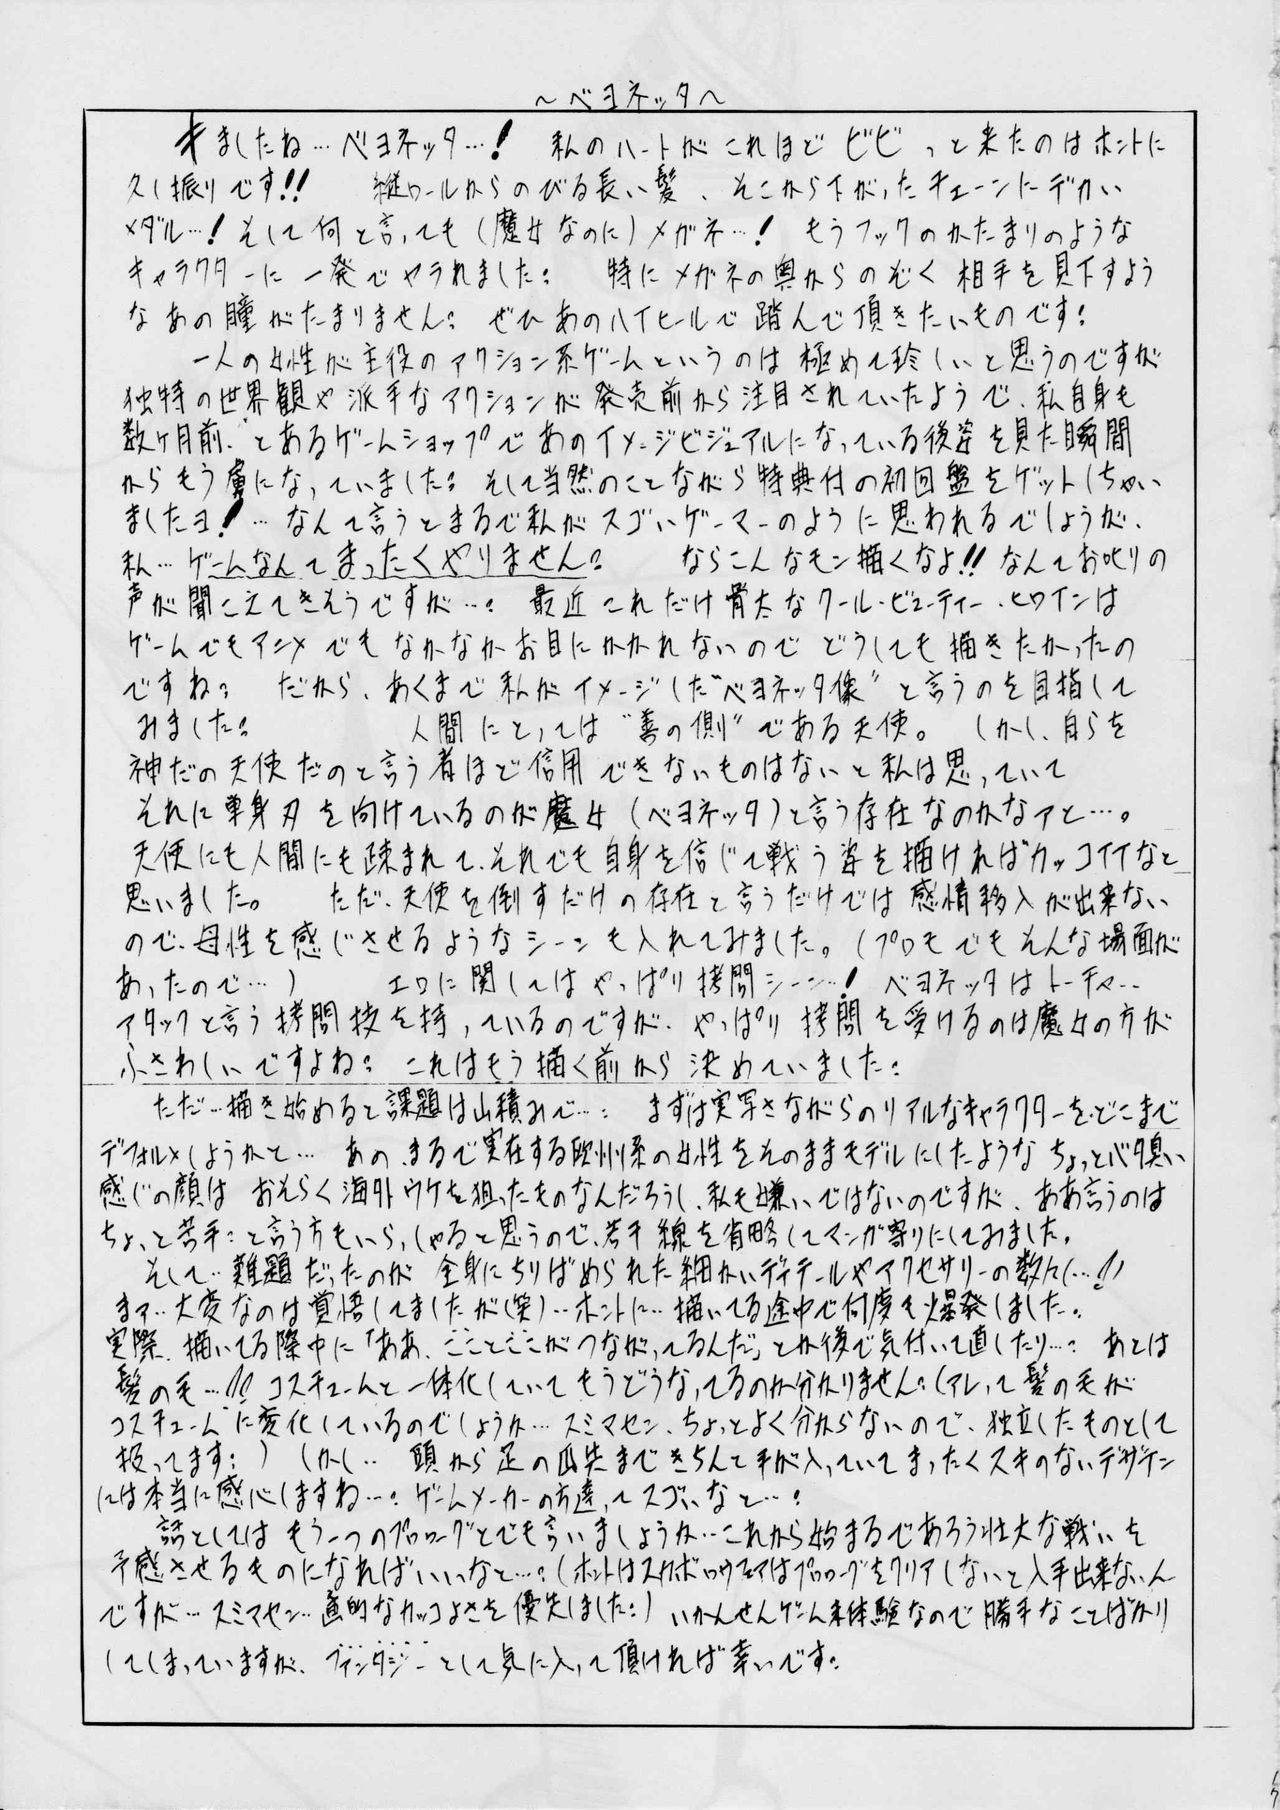 ～ベヨネッタ～
キましたね…ベヨネッタ…! 私のハートがこれほどビビっと来たのはホントに
久し振りです!! 縦ロールからのびる長い髪、そこから下がったチェーンにデカい
メダル…! そして何と言っても(魔女なのに)メガネ…! もうフックのかたまりのような
キャラクターに一発でヤラれました: 特にメガネの奥からのぞく相手を見下すよう
なあの瞳がたまりません: ぜひあのハイヒールで踏んで頂きたいものです:
一人の女性が主役のアクション系ゲームというのは極めて珍しいと思うのですが
独特の世界観や派手なアクションが発売前から注目されていたようで、私自身も
数ヶ月前、とあるゲームショップであのイメージビジュアルになっている後姿を見た瞬間
からもう虜になっていました: そして当然のことながら特典付の初回盤をゲットしちゃい
ましたヨ!…なんて言うとまるで私がスゴいゲーマーのように思われるでしょうが、
私…ゲームなんてまったくやりません: ならこんなモン描くなよ!! なんてお叱りの
声が聞こえてきそうですが…: 最近これだけ骨太なクール・ビューティー・ヒロインは
ゲームでもアニメでもなかなかお目にかかれないのでどうしても描きたかったの
ですね: だから、あくまで私がイメージした"ベヨネッタ像"と言うのを目指して
みました: 人間にとっては"善の側"である天使。 しかし、自らを
神だの天使だのと言う者ほど信用できないものはないと私は思っていて
それに単身刃を向けているのが魔女(ベヨネッタ)と言う存在なのかなァと…。
天使にも人間にも疎まれて、それでも自身を信じて戦う姿を描ければカッコイイなと
思いました。 ただ、天使を倒すだけの存在と言うだけでは感情移入が出来ない
ので、母性を感じさせるようなシーンも入れてみました。(プロモでもそんな場面が
あったので…) エロに関してはやっぱり拷問シーン…! ベヨネッタはトーチャー
アタックと言う拷問技を持っているのですが、やっぱり拷問を受けるのは魔女の方が
ふさわしいですよね: これはもう描く前から決めていました:
ただ…描き始めると課題は山積みで…: まずは実写さながらのリアルなキャラクターを、どこまで
デフォルメしようかと… あの、まるで実在する欧州系の女性をそのままモデルにしたようなちょっとバタ臭い
感じの顔はおそらく海外ウケを狙ったものなんだろうし、私も嫌いではないのですが、ああ言うのは
ちょっと苦手:と言う方もいらっしゃると思うので、若干線を省略してマンガ寄りにしてみました。
そして…難題だったのが全身にちりばめられた細かいディテールやアクセサリーの数々…!!
まァ…大変なのは覚悟してましたが(笑)…ホントに…描いてる途中で何度も爆発しました。
実際、描いてる際中に「ああ、こことここがつながってるんだ」とか後で気付いて直したり…: あとは
髪の毛…!! コスチュームと一体化していてもうどうなってるのか分かりません:(アレって髪の毛が
コスチュームに変化しているのでしょうか…スミマセン、ちょっとよく分からないので、独立したものとして
扱ってます:) しかし… 頭から足の爪先まできちんと手が入っていてまったくスキのないデザイン
には本当に感心しますね…: ゲームメーカーの方達ってスゴいなと…:
話としてはもう一つのプロローグとでも言いましょうか…これから始まるであろう壮大な戦いを
予感させるものになればいいなと…:(ホントはスカボロウフェアはプロローグをクリアしないと入手出来ないん
ですが…スミマセン…画的なカッコよさを優先しました:) いかんせんゲーム未体験なので勝手なことばかり
してしまっていますが、ファンタジーとして気に入って頂ければ幸いです: